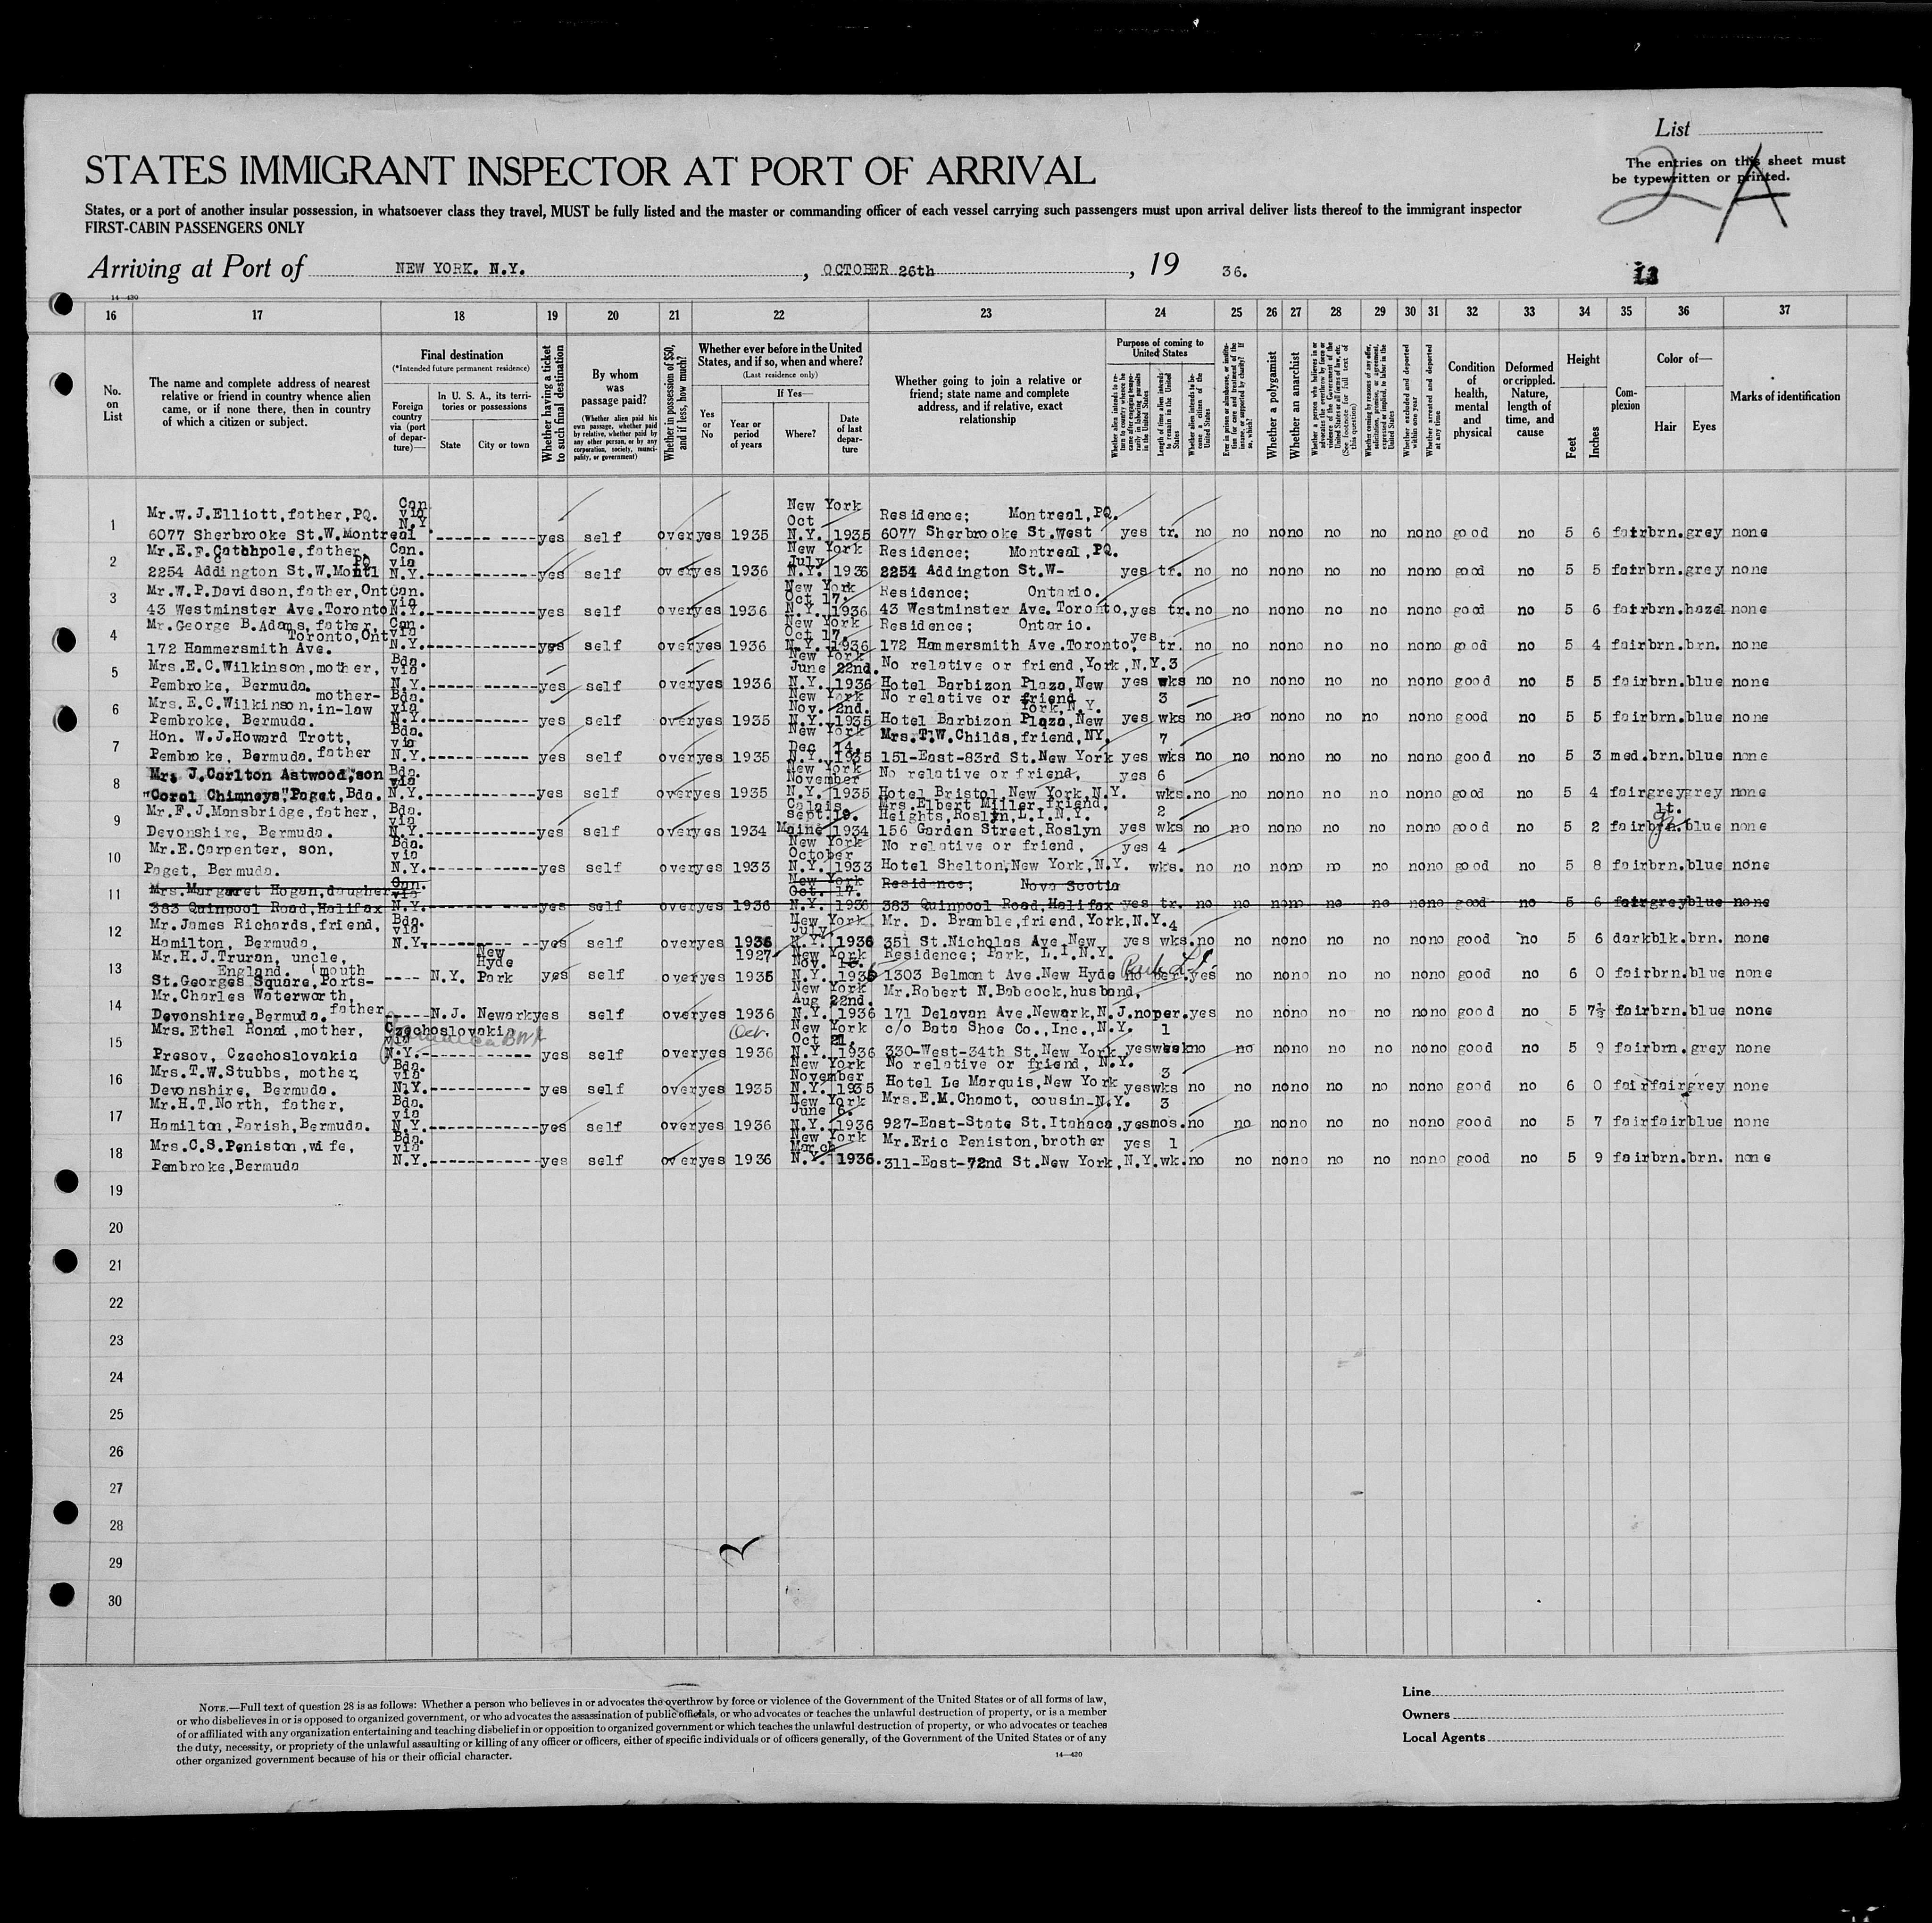 List
The entries on this sheet must
be typewritten or printed.
2 A
STATES IMMIGRANT INSPECTOR AT PORT OF ARRIVAL
States, or a port of another insular possession, in whatsoever class they travel, MUST be fully listed and the master or commanding officer of each vessel carrying such passengers must upon arrival deliver lists thereof to the immigrant inspector
FIRST-CABIN PASSENGERS ONLY
Arriving at Port of NEW YORK. N.Y. , OCTOBER 26th , 19 36.
14—430
16 17 18 19 20 21 22 23 24 25 26 27 28 29 30 31 32 33 34 35 36 37
No. on List
The name and complete address of nearest relative or friend in country whence alien came, or if none there, then in country of which a citizen or subject.
Final destination
(*Intended future permanent residence)
Foreign country via (port of departure)—
In U. S. A., its territories or possessions
State City or town
Whether having a ticket to such final destination
By whom was passage paid?
(Whether alien paid his own passage, whether paid by relative, whether paid by any other person, or by any corporation, society, municipality, or government)
Whether in possession of $50, and if less, how much?
Whether ever before in the United States, and if so, when and where?
(Last residence only)
Yes or No
If Yes—
Year or period of years
Where?
Date of last departure
Whether going to join a relative or friend; state name and complete address, and if relative, exact relationship
Purpose of coming to United States
Whether alien intends to return to country whence he came after engaging temporarily in laboring pursuits in the United States
Length of time alien intends to remain in the United States
Whether alien intends to become a citizen of the United States
Ever in prison or almshouse, or institution for care and treatment of the insane, or supported by charity? If so, which?
Whether a polygamist
Whether an anarchist
Whether a person who believes in or advocates the overthrow by force or violence of the Government of the United States or all forms of law, etc. (See footnote for full text of this question)
Whether coming by reasons of any offer, solicitation, promise, or agreement, expressed or implied, to labor in the United States
Whether excluded and deported within one year
Whether arrested and deported at any time
Condition of health, mental and physical
Deformed or crippled. Nature, length of time, and cause
Height
Feet Inches
Complexion
Color of—
Hair Eyes
Marks of identification
1 Mr.W.J.Elliott,father,PQ. Can. via New York Oct Residence; Montreal,PQ.
6077 Sherbrooke St.W.Montreal N.Y. yes self over yes 1935 N.Y. 1935 6077 Sherbrooke St.West yes tr. no no no no no no no no good no 5 6 fair brn. grey none
2 Mr.E.F.Catchpole,father, PQ Can. via New York July Residence; Montreal,PQ.
2254 Addington St.W.Montl N.Y. yes self over yes 1936 N.Y. 1936 2254 Addington St.W- yes tr. no no no no no no no no good no 5 5 fair brn. grey none
3 Mr.W.P.Davidson,father,Ont Can. via New York Oct 17. Residence; Ontario.
43 Westminster Ave.Toronto N.Y. yes self over yes 1936 N.Y. 1936 43 Westminster Ave.Toronto, yes tr. no no no no no no no no good no 5 6 fair brn. hazel none
4 Mr.George B.Adams,father, Toronto,Ont Can. via New York Oct 17. Residence; Ontario.
172 Hammersmith Ave. N.Y. yes self over yes 1936 N.Y. 1936 172 Hammersmith Ave.Toronto, yes tr. no no no no no no no no good no 5 4 fair brn. brn. none
5 Mrs.E.C.Wilkinson,mother, Bda. via New York June 22nd. No relative or friend,York,N.Y. 3
Pembroke, Bermuda. N.Y. yes self over yes 1936 N.Y. 1936 Hotel Barbizon Plaza,New yes wks no no no no no no no no good no 5 5 fair brn. blue none
6 Mrs.E.C.Wilkinson, mother-in-law Bda. via New York Nov. 2nd. No relative or friend York,N.Y. 3
Pembroke, Bermuda. N.Y. yes self over yes 1935 N.Y. 1935 Hotel Barbizon Plaza,New yes wks no no no no no no no no good no 5 5 fair brn. blue none
7 Hon. W.J.Howard Trott, Bda. via New York Dec 14. Mrs.T.W.Childs,friend,NY. 7
Pembroke, Bermuda. father N.Y. yes self over yes 1935 N.Y. 1935 151-East-83rd St.New York yes wks no no no no no no no no good no 5 3 med. brn. blue none
8 Mr. J.Carlton Astwood,"son Bda. via New York November No relative or friend, yes 6
"Coral Chimneys"Paget,Bda. N.Y. yes self over yes 1935 N.Y. 1935 Hotel Bristol New York,N.Y. wks. no no no no no no no no good no 5 4 fair grey grey none
9 Mr.F.J.Mansbridge,father, Bda. via Calais sept.19. Mrs.Elbert Miller,friend, Heights,Roslyn,L.I.N.Y. 2 lt.
Devonshire, Bermuda. N.Y. yes self over yes 1934 Maine 1934 156 Garden Street,Roslyn yes wks no no no no no no no no good no 5 2 fair brn. blue none
10 Mr.E.Carpenter, son, Bda. via New York October No relative or friend, yes 4
Paget, Bermuda. N.Y. yes self over yes 1933 N.Y. 1933 Hotel Shelton,New York,N.Y. wks. no no no m m no no no good no 5 8 fair brn. blue none
11 Mrs.Margaret Hogan,daugher Can. via New York Oct. 17. Residence; Nova Scotia
383 Quinpool Road,Halifax N.Y. yes self over yes 1936 N.Y. 1936 383 Quinpool Road,Halifax yes tr. no no no m no no no no good no 5 6 fair grey blue none
12 Mr.James Richards,friend, Bda. via New York July Mr. D. Bramble,friend,York,N.Y. 4
Hamilton, Bermuda, N.Y. yes self over yes 1936 N.Y. 1936 351 St.Nicholas Ave.New yes wks. no no no no no no no no good no 5 6 dark blk. brn. none
13 Mr.H.J.Truran, uncle, England. (mouth New Hyde 1927 New York Nov. Residence; Park, L.I.N.Y.
St.Georges Square,Ports- N.Y. Park yes self over yes 1935 N.Y. 1935 1303 Belmont Ave.New Hyde no per. yes no no no no no no no good no 6 0 fair brn. blue none
14 Mr.Charles Waterworth, New York Aug 22nd. Mr.Robert N.Babcock,husband,
Devonshire,Bermuda. father N.J. Newark yes self over yes 1936 N.Y. 1936 171 Delavan Ave.Newark,N.J. no per. yes no no no no no no no good no 5 7½ fair brn. blue none
15 Mrs. Ethel Ronai,mother, Czechoslovakia via Oct. New York Oct 21. c/o Bata Shoe Co.,Inc.,N.Y. 1
Presov, Czechoslovakia N.Y. yes self over yes 1936 N.Y. 1936 330-West-34th St.New York yes week no no no no no no no no good no 5 9 fair brn. grey none
16 Mrs.T.W.Stubbs, mother, Bda. via New York November No relative or friend, N.Y. 3
Devonshire, Bermuda. N.Y. yes self over yes 1935 N.Y. 1935 Hotel Le Marquis,New York yes wks no no no no no no no no good no 6 0 fair fair grey none
17 Mr.H.T.North, father, Bda. via New York June 6. Mrs.E.M.Chamot, cousin-N.Y. 3
Hamilton,Parish,Bermuda. N.Y. yes self over yes 1936 N.Y. 1936 927-East-State St.Itahaca, yes mos. no no no no no no no no good no 5 7 fair fair blue none
18 Mrs.C.S.Peniston,wife, Bda. via New York March Mr.Eric Peniston,brother yes 1
Pembroke,Bermuda N.Y. yes self over yes 1936 N.Y. 1936. 311-East-72nd St.New York,N.Y. wk. no no no no no no no no good no 5 9 fair brn. brn. none
19
20
21
22
23
24
25
26
27
28
29
30
2
NOTE.—Full text of question 28 is as follows: Whether a person who believes in or advocates the overthrow by force or violence of the Government of the United States or of all forms of law,
or who disbelieves in or is opposed to organized government, or who advocates the assassination of public officials, or who advocates or teaches the unlawful destruction of property, or is a member
of or affiliated with any organization entertaining and teaching disbelief in or opposition to organized government or which teaches the unlawful destruction of property, or who advocates or teaches
the duty, necessity, or propriety of the unlawful assaulting or killing of any officer or officers, either of specific individuals or of officers generally, of the Government of the United States or of any
other organized government because of his or their official character.
14—430
Line
Owners
Local Agents